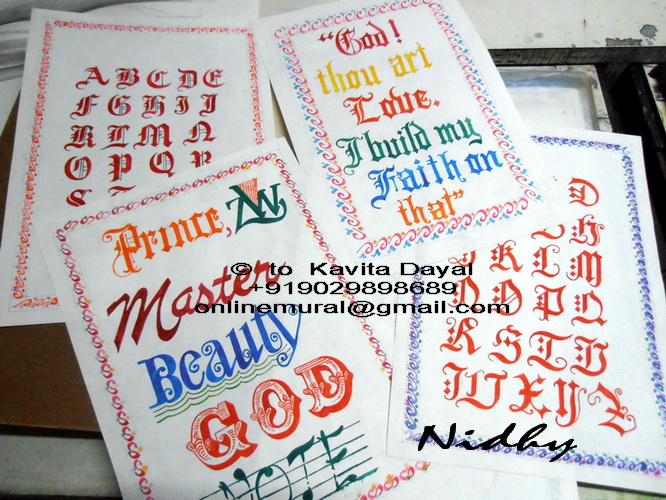 A B C D E
F G H I J
K L M N
O P Q R
S T
"God!
thou art
Love.
I build my
Faith on
that"
Prince,
Master
Beauty
GOD
NOTE
© to Kavita Dayal
+919029898689
onlinemural@gmail.com
K S T U
W X Y Z
Nidhy